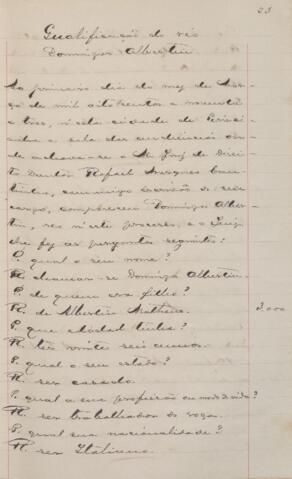 23
Qualificação do réo
Domingos Albertin
Ao primeiro dia do mez de Mar-
ço de mil oitocentos e noventa
e tres, nesta cidade de
e sala das audiencias on-
de achava-se o M. Juiz de Direi-
to Doutor Rafael Marques Cou-
tinho, commigo escrivão de seu
cargo, compareceu Domingos Alber-
tin, réo neste processo, e o Juiz
lhe fez as perguntas seguintes:
P. qual o seu nome?
R. chamar-se Domingos Albertin.
P. de quem era filho?
R. de Albertin Matheus. 2.000
P. que idade tinha?
R. ter vinte seis annos.
P. qual o seu estado?
R. ser casado.
P. qual a sua profissão ou modo de vida?
R. ser trabalhador de roça.
P. qual sua nacionalidade?
R. ser Italiano.